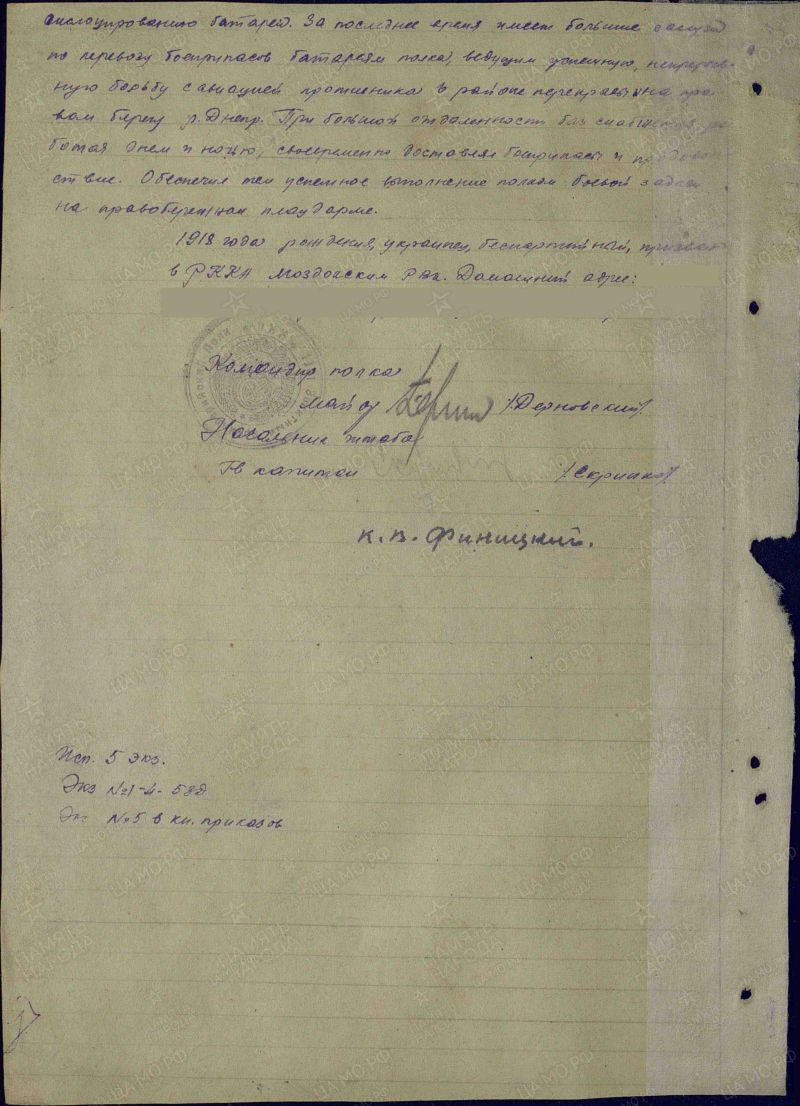 дислоцированию батарей. За последнее время имеет большие заслуги
по перевозу боеприпасов батареям полка, ведущим успешную, непрерыв-
ную борьбу с авиацией противника в районе переправы на пра-
вом берегу р. Днепр. При большой отдаленности баз снабжения, ра-
ботая днем и ночью, своевременно доставлял боеприпасы и продоволь-
ствие. Обеспечил тем успешное выполнение полком боевой задачи
на правобережном плацдарме.
1918 года рождения, украинец, беспартийный, призван
в РККА Моздокским РВК. Домашний адрес:
Командир полка
майор /Дерновский/
Начальник штаба
Гв капитан /Скрипко/
К. В. Финицкий.
Исп. 5 экз.
Экз №1-4-
Эк №5 в кн. приказов
ПАМЯТЬ НАРОДА
ЦАМО.РФ